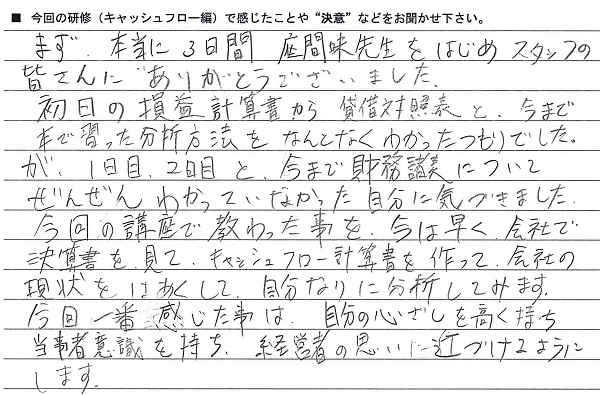 ■ 今回の研修(キャッシュフロー編)で感じたことや“決意”などをお聞かせ下さい。
まず、本当に3日間 庭間味先生をはじめスタッフの
皆さんにありがとうございました。
初日の損益計算書から 貸借対照表と、今まで
本で習った分析方法をなんとなくわかったつもりでした。
が、1日目、2日目と、今まで財務諸表について
ぜんぜんわかっていなかった自分に気づきました。
今回の講座で教わった事を、今は早く、会社で
決算書を見て、キャッシュフロー計算書を作って、会社の
現状をはあくして、自分なりに分析してみます。
今回一番感じた事は、自分の心ざしを高く持ち
当事者意識を持ち、経営者の思いに近づけるように
します。